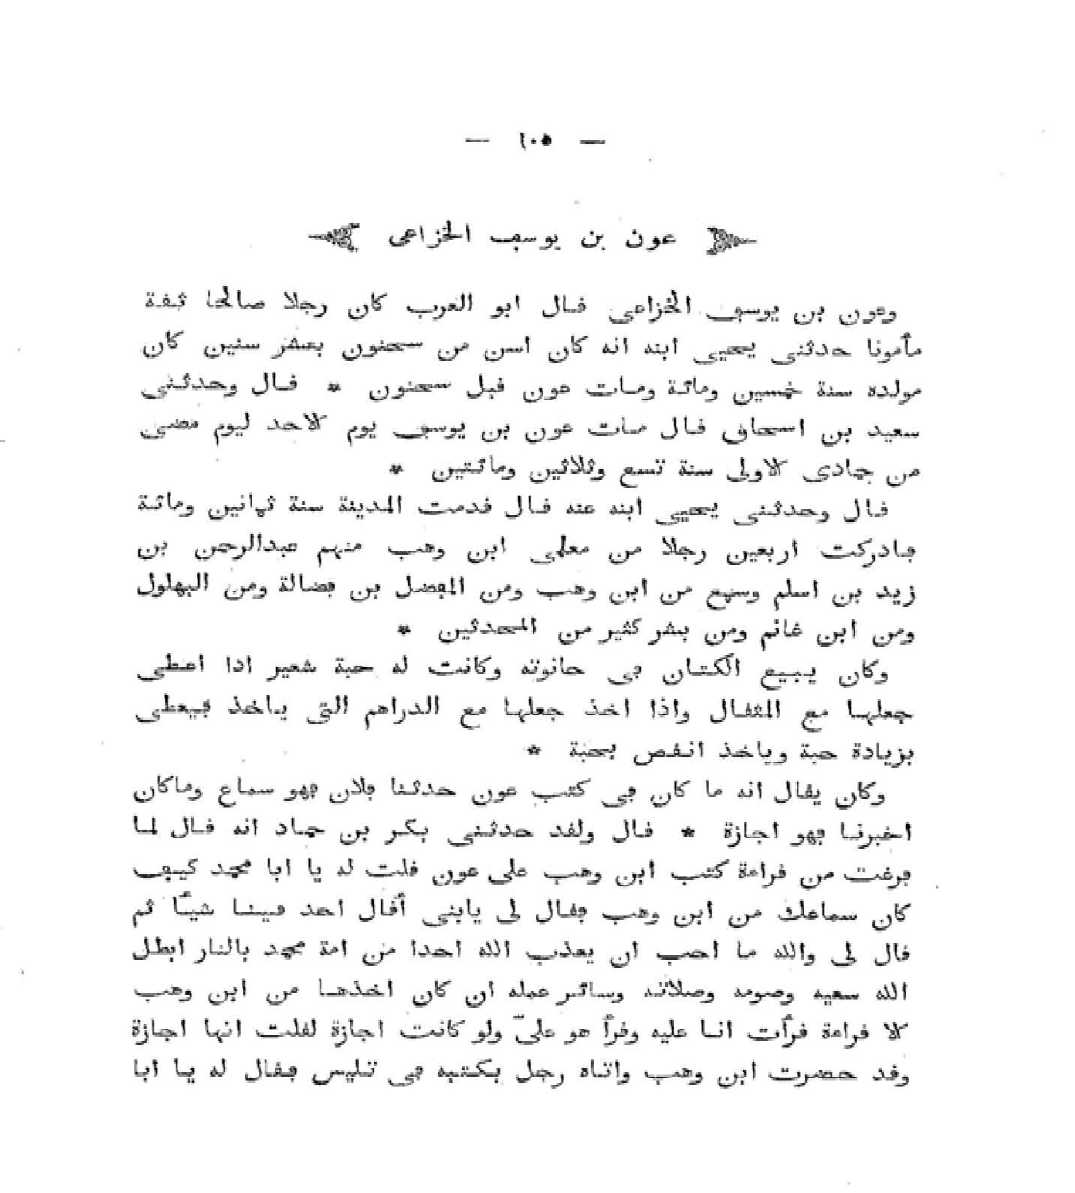 — ١٠٥ —
عون بن يوسف الخزاعى
وعون بن يوسف الخزاعى قال ابو العرب كان رجلا صالحا ثقة
مأمونا حدثنى يحيى ابنه انه كان اسن من سحنون بعشر سنين كان
مولده سنة خمسين ومائة ومات عون قبل سحنون * قال وحدثنى
سعيد بن اسحاق قال مات عون بن يوسف يوم الاحد ليوم مضى
من جمادى الاولى سنة تسع وثلاثين ومائتين *
قال وحدثنى يحيى ابنه عنه قال قدمت المدينة سنة ثمانين ومائة
فادركت اربعين رجلا من معلمى ابن وهب منهم عبدالرحمن بن
زيد بن اسلم وسمع من ابن وهب ومن المفضل بن فضالة ومن البهلول
ومن ابن غانم ومن بشر كثير من المحدثين *
وكان يبيع الكتان فى حانوته وكانت له حبة شعير اذا اعطى
جعلها مع المثقال واذا اخذ جعلها مع الدراهم التى ياخذ فيعطى
بزيادة حبة وياخذ انقص بحبة *
وكان يقال انه ما كان فى كتب عون حدثنا فلان فهو سماع وماكان
اخبرنا فهو اجازة * قال ولقد حدثنى بكر بن حماد انه قال لما
فرغت من قراءة كتب ابن وهب على عون قلت له يا ابا محمد كيف
كان سماعك من ابن وهب فقال لى يابنى أقال احد فينا شيأ ثم
قال لى والله ما احب ان يعذب الله احدا من امة محمد بالنار ابطل
الله سعيه وصومه وصلاته وسائر عمله ان كان اخذها من ابن وهب
الا قراءة قرأت انا عليه وقرأ هو علىّ ولو كانت اجازة لقلت انها اجازة
وقد حضرت ابن وهب واتاه رجل بكتبه فى تليس فقال له يا ابا